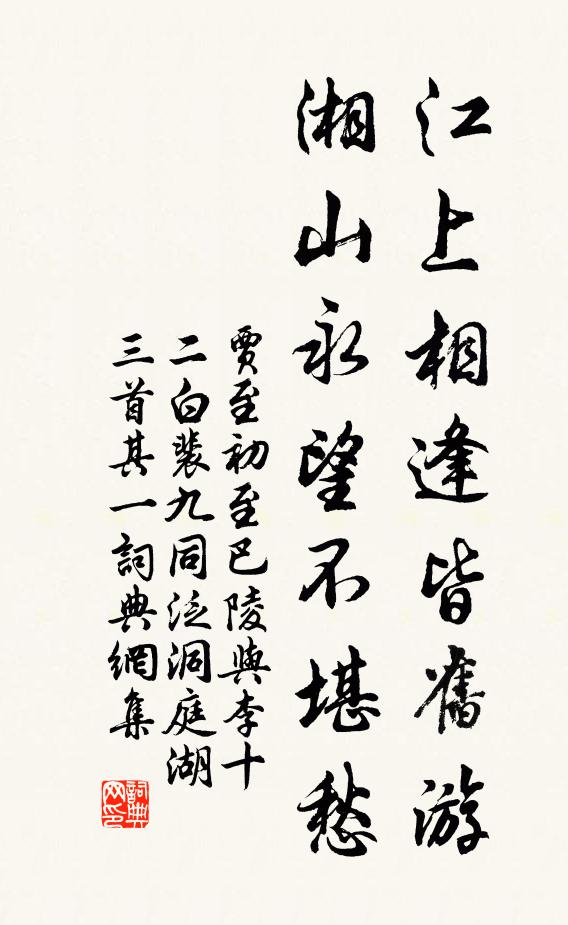 江上相逢皆舊游
湘山永望不堪愁
賈至初至巴陵與李十
二白裴九同泛洞庭湖
三首其一詞典網集
詞典
网印